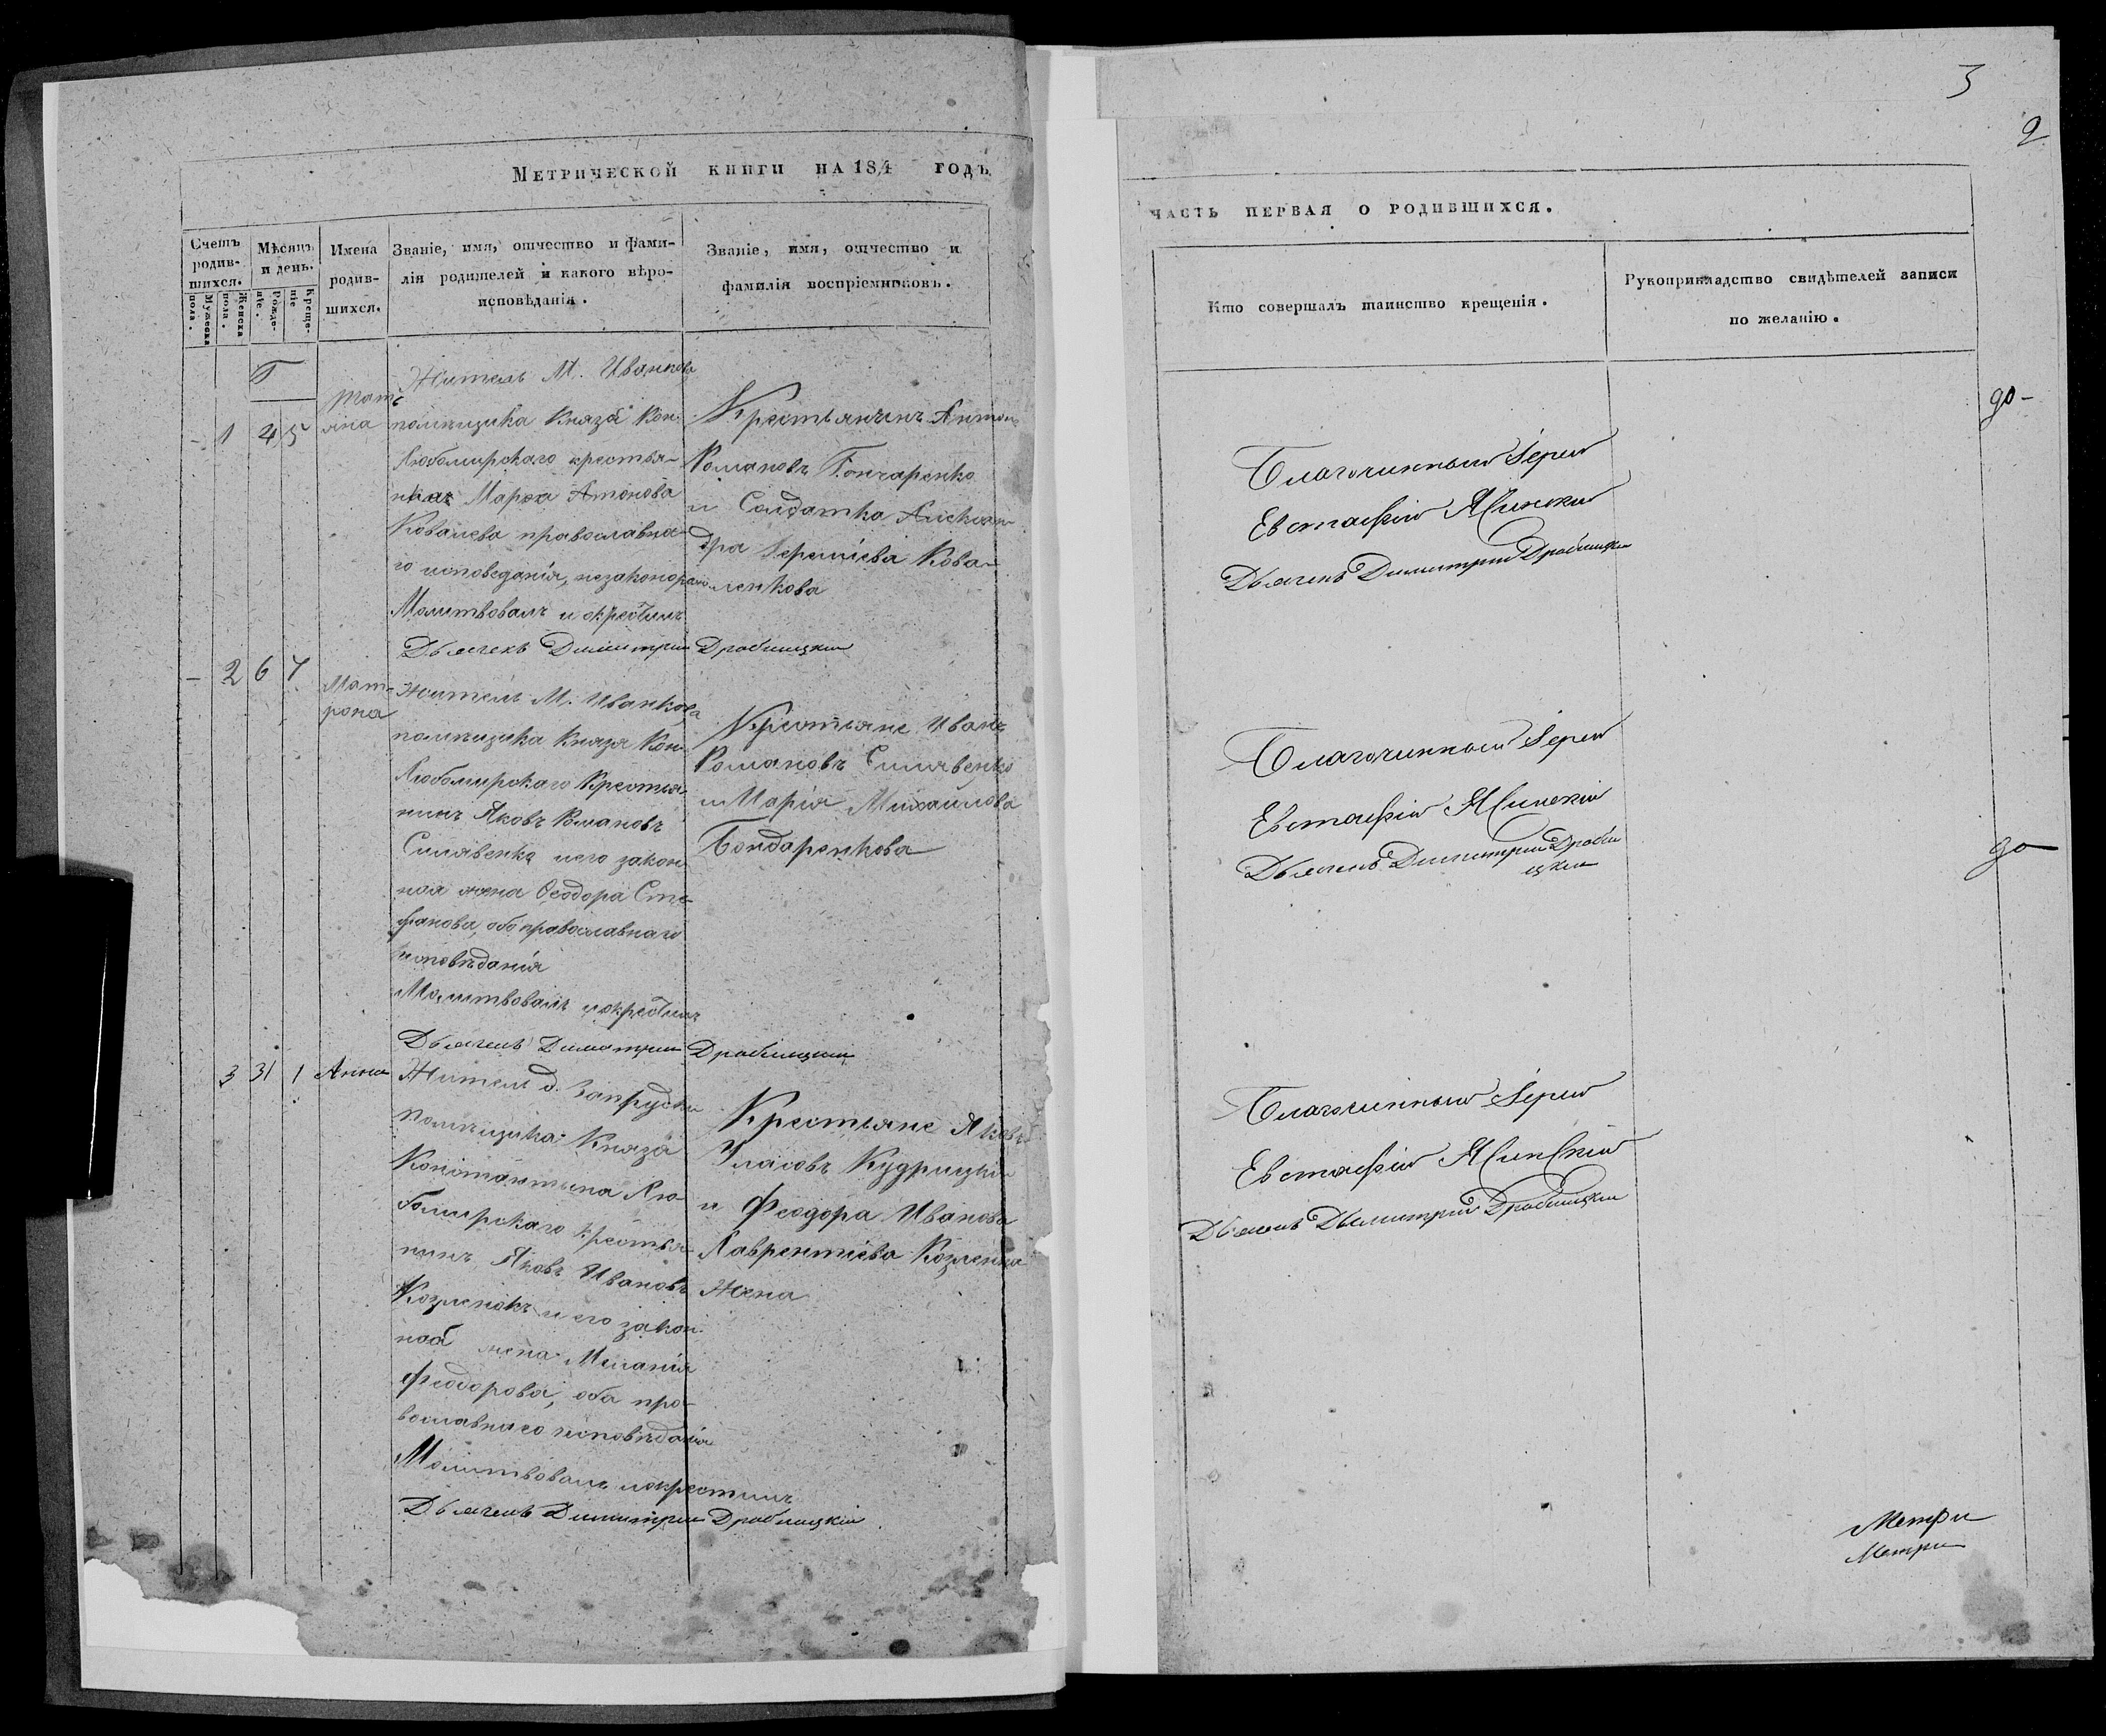 Метрической книги на 184 годъ
Счетъ родившихся.
Мужеска пола.
Женска пола.
Мѣсяцъ и день.
Рожденіе.
Крещеніе
Имена родившихся.
Званіе, имя, отчество и фамилія родителей и какого вѣроисповѣданія.
Званіе, имя, отчество и фамилія воспріемниковъ.
1 4 5
Татіяна
Житель М. Иванкова
помѣщика Князя Кон.
Любомирскаго крестья-
Марѳа Антонова
Ковалева православна-
го исповеданія, незаконорож
Молитвовалъ и окрестилъ
Дьячекъ Димитрій Дробницкій
Крестьянинъ Антонъ
Романовъ Гончаренко
и Солдатка Алексан-
дра Кова-
ленкова
– 2 6 7
Мат-
рона
Житель М. Иванкова
помѣщика Князя Кон.
Любомирскаго Крестья-
нинъ Яковъ Романовъ
Симавенко и его закон-
ная жена Ѳеодора Сте-
фанова, обо православнаго
исповѣданія
Молитвовалъ и окрестилъ
Дьячекъ Димитрій Дробницкій
Крестьяне Иванъ
Романовъ Симавенко
и Марія Михайлова
Бондаренкова
3 31 1 Анна
Житель д. Запрудки
помѣщика Князя
Константина Лю-
бомирскаго крестья-
нинъ Яковъ Ивановъ
Козленокъ и его закон-
ная жена Меланія
Феодорова, оба пра-
вославнаго исповѣданія
Молитвовалъ и окрестилъ
Дьячекъ Димитрій Дробницкій
Крестьяне Яковъ
Уласовъ Кудрицкій
и Феодора Иванова
Лаврентіева Козленка
Жена
3
2
часть первая о родившихся.
Кто совершалъ таинство крещенія.
Рукоприкладство свидѣтелей записи по желанію.
Благочинный Іерей
Евстафій Ясинскій
Дьячекъ Димитрій Дробницкій
Благочинный Іерей
Евстафій Ясинскій
Дьячекъ Димитрій Дробни
цкій
Благочинный Іерей
Евстафій Ясинскій
Дьячекъ Димитрій Дробницкій
Метри
Метри